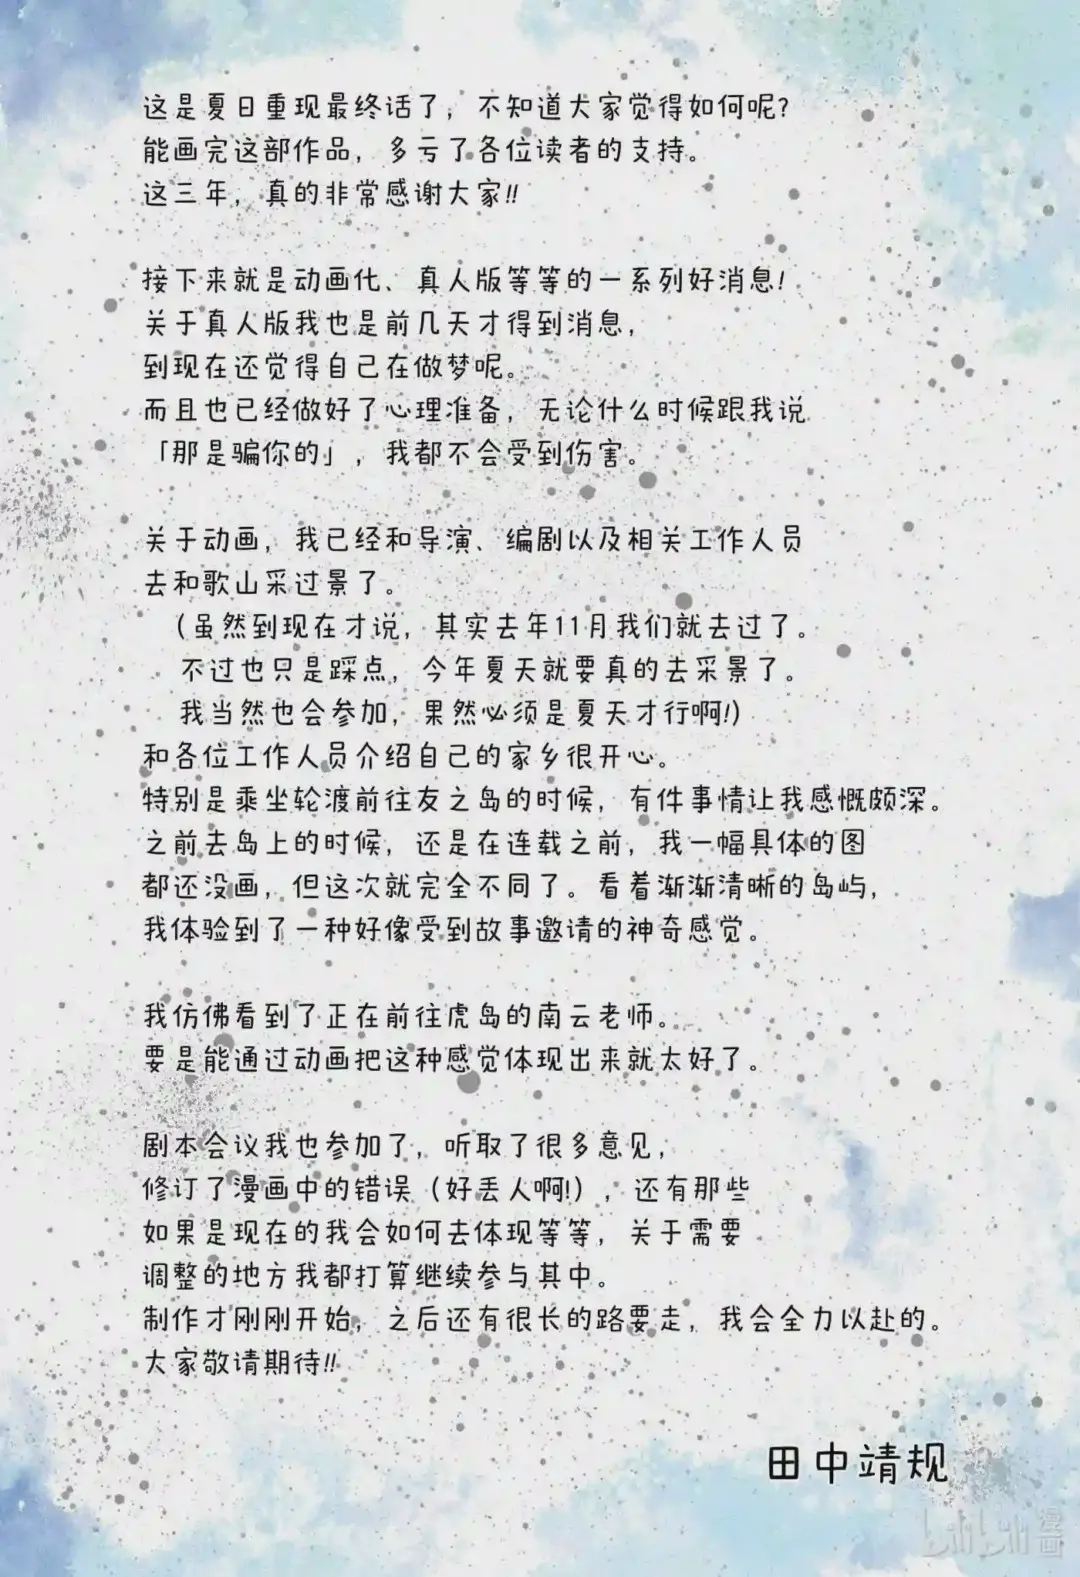 这是夏日重现最终话了，不知道大家觉得如何呢?
能画完这部作品，多亏了各位读者的支持。
这三年，真的非常感谢大家!!
接下来就是动画化、真人版等等的一系列好消息!
关于真人版我也是前几天才得到消息，
到现在还觉得自己在做梦呢。
而且也已经做好了心理准备，无论什么时候跟我说
「那是骗你的」，我都不会受到伤害。
关于动画，我已经和导演、编剧以及相关工作人员
去和歌山采过景了。
（虽然到现在才说，其实去年11月我们就去过了。
不过也只是踩点，今年夏天就要真的去采景了。
我当然也会参加，果然必须是夏天才行啊!）
和各位工作人员介绍自己的家乡很开心。
特别是乘坐轮渡前往友之岛的时候，有件事情让我感慨颇深。
之前去岛上的时候，还是在连载之前，我一幅具体的图
都还没画，但这次就完全不同了。看着渐渐清晰的岛屿，
我体验到了一种好像受到故事邀请的神奇感觉。
我仿佛看到了正在前往虎岛的南云老师。
要是能通过动画把这种感觉体现出来就太好了。
剧本会议我也参加了，听取了很多意见，
修订了漫画中的错误（好丢人啊!），还有那些
如果是现在的我会如何去体现等等，关于需要
调整的地方我都打算继续参与其中。
制作才刚刚开始，之后还有很长的路要走，我会全力以赴的。
大家敬请期待!!
田中靖规
bilibili漫画